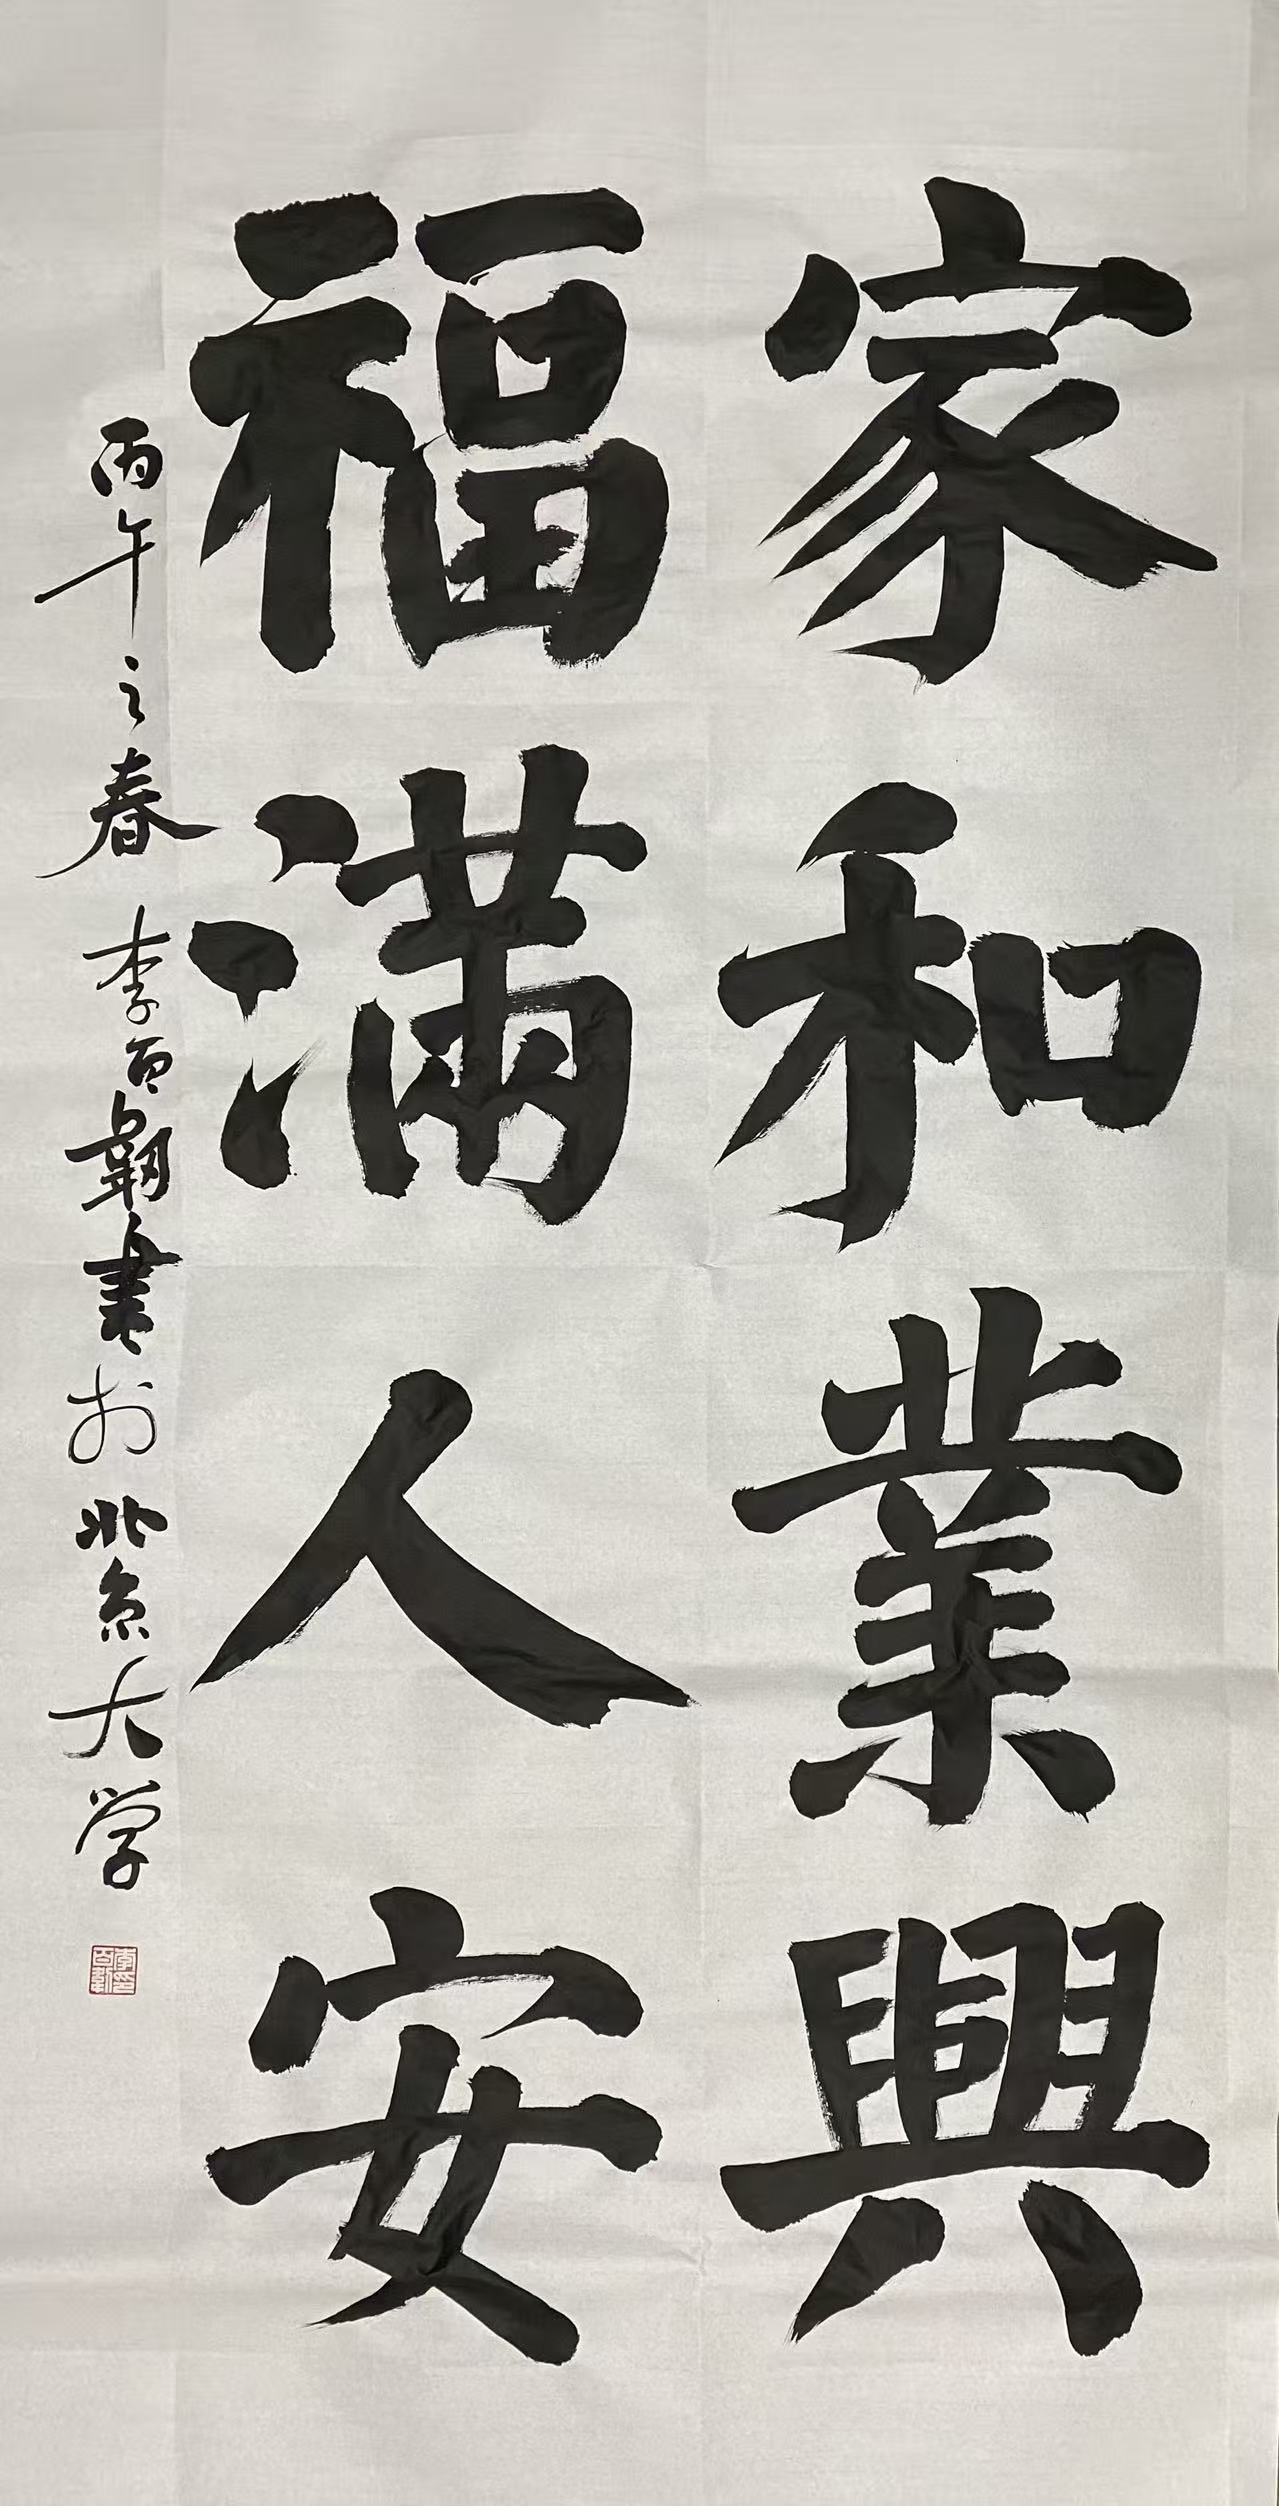 家和業興
福满人安
丙午之春 李百韌書於北京大学